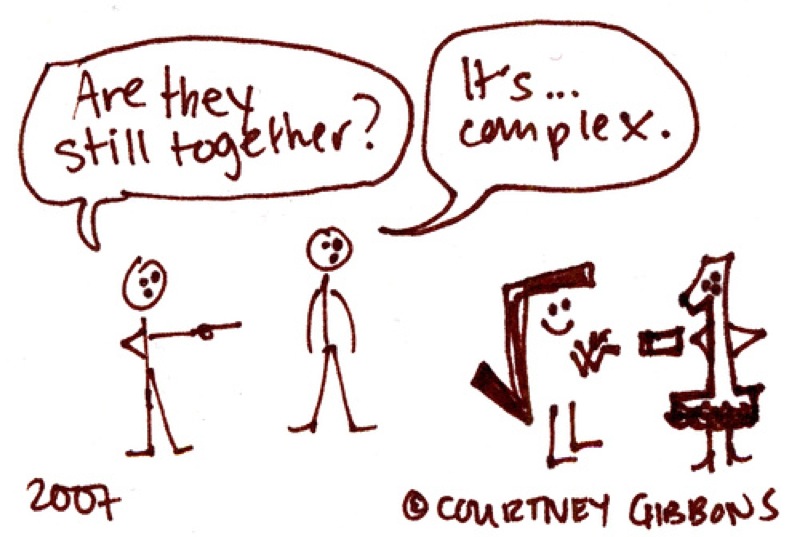 Are they
still together?
It's...
complex.
2007
© COURTNEY GIBBONS